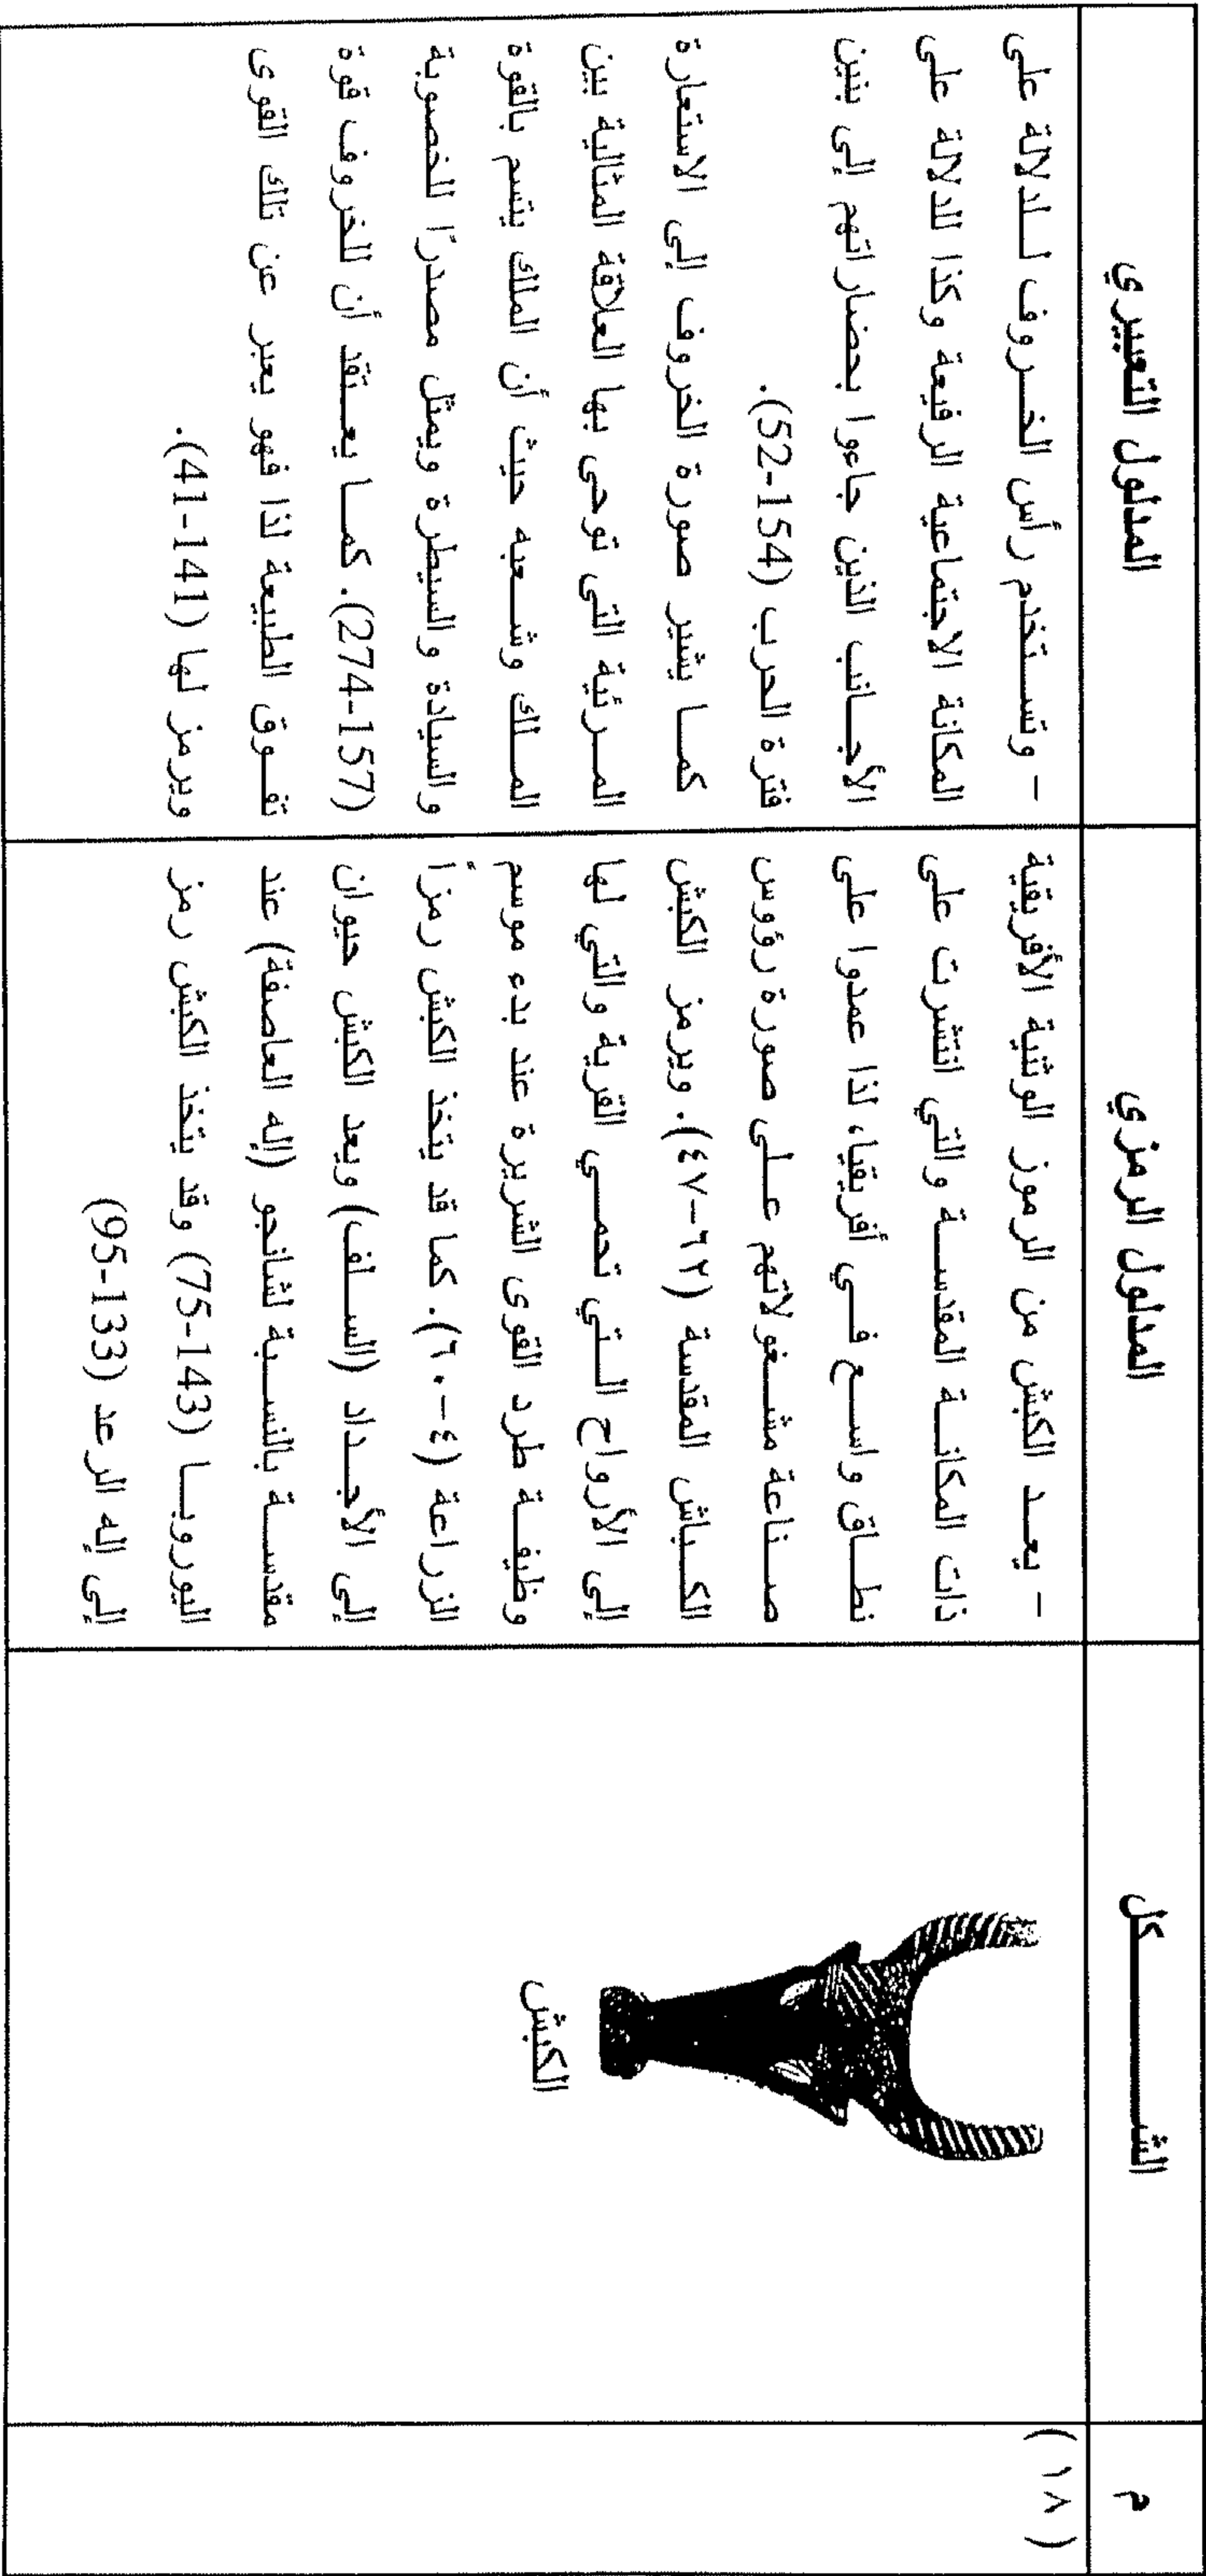 م
الشـــــــكل
المدلول الرمزي
المدلول التعبيري
(١٨)
الكبش
- يعد الكبش من الرموز الوثنية الأفريقية
ذات المكانة المقدسة والتي انتشرت على
نطاق واسع في أفريقيا، لذا عمدوا على
صناعة مشغولاتهم على صورة رؤوس
الكباش المقدسة (٦٢-٤٧). ويرمز الكبش
إلى الأرواح التي تحمي القرية والتي لها
وظيفة طرد القوى الشريرة عند بدء موسم
الزراعة (٤-٦٠). كما قد يتخذ الكبش رمزاً
إلى الأجداد (السلف) ويعد الكبش حيوان
مقدسة بالنسبة لشانجو (إله العاصفة) عند
اليوروبا (143-75) وقد يتخذ الكبش رمز
إلى إله الرعد (133-95)
- وتستخدم رأس الخروف للدلالة على
المكانة الاجتماعية الرفيعة وكذا للدلالة على
الأجانب الذين جاءوا بحضاراتهم إلى بنين
فترة الحرب (154-52).
كما يشير صورة الخروف إلى الاستعارة
المرئية التى توحى بها العلاقة المثالية بين
الملك وشعبه حيث أن الملك يتسم بالقوة
والسيادة والسيطرة ويمثل مصدرًا للخصوبة
(157-274). كما يعتقد أن للخروف قوة
تفوق الطبيعة لذا فهو يعبر عن تلك القوى
ويرمز لها (141-41).